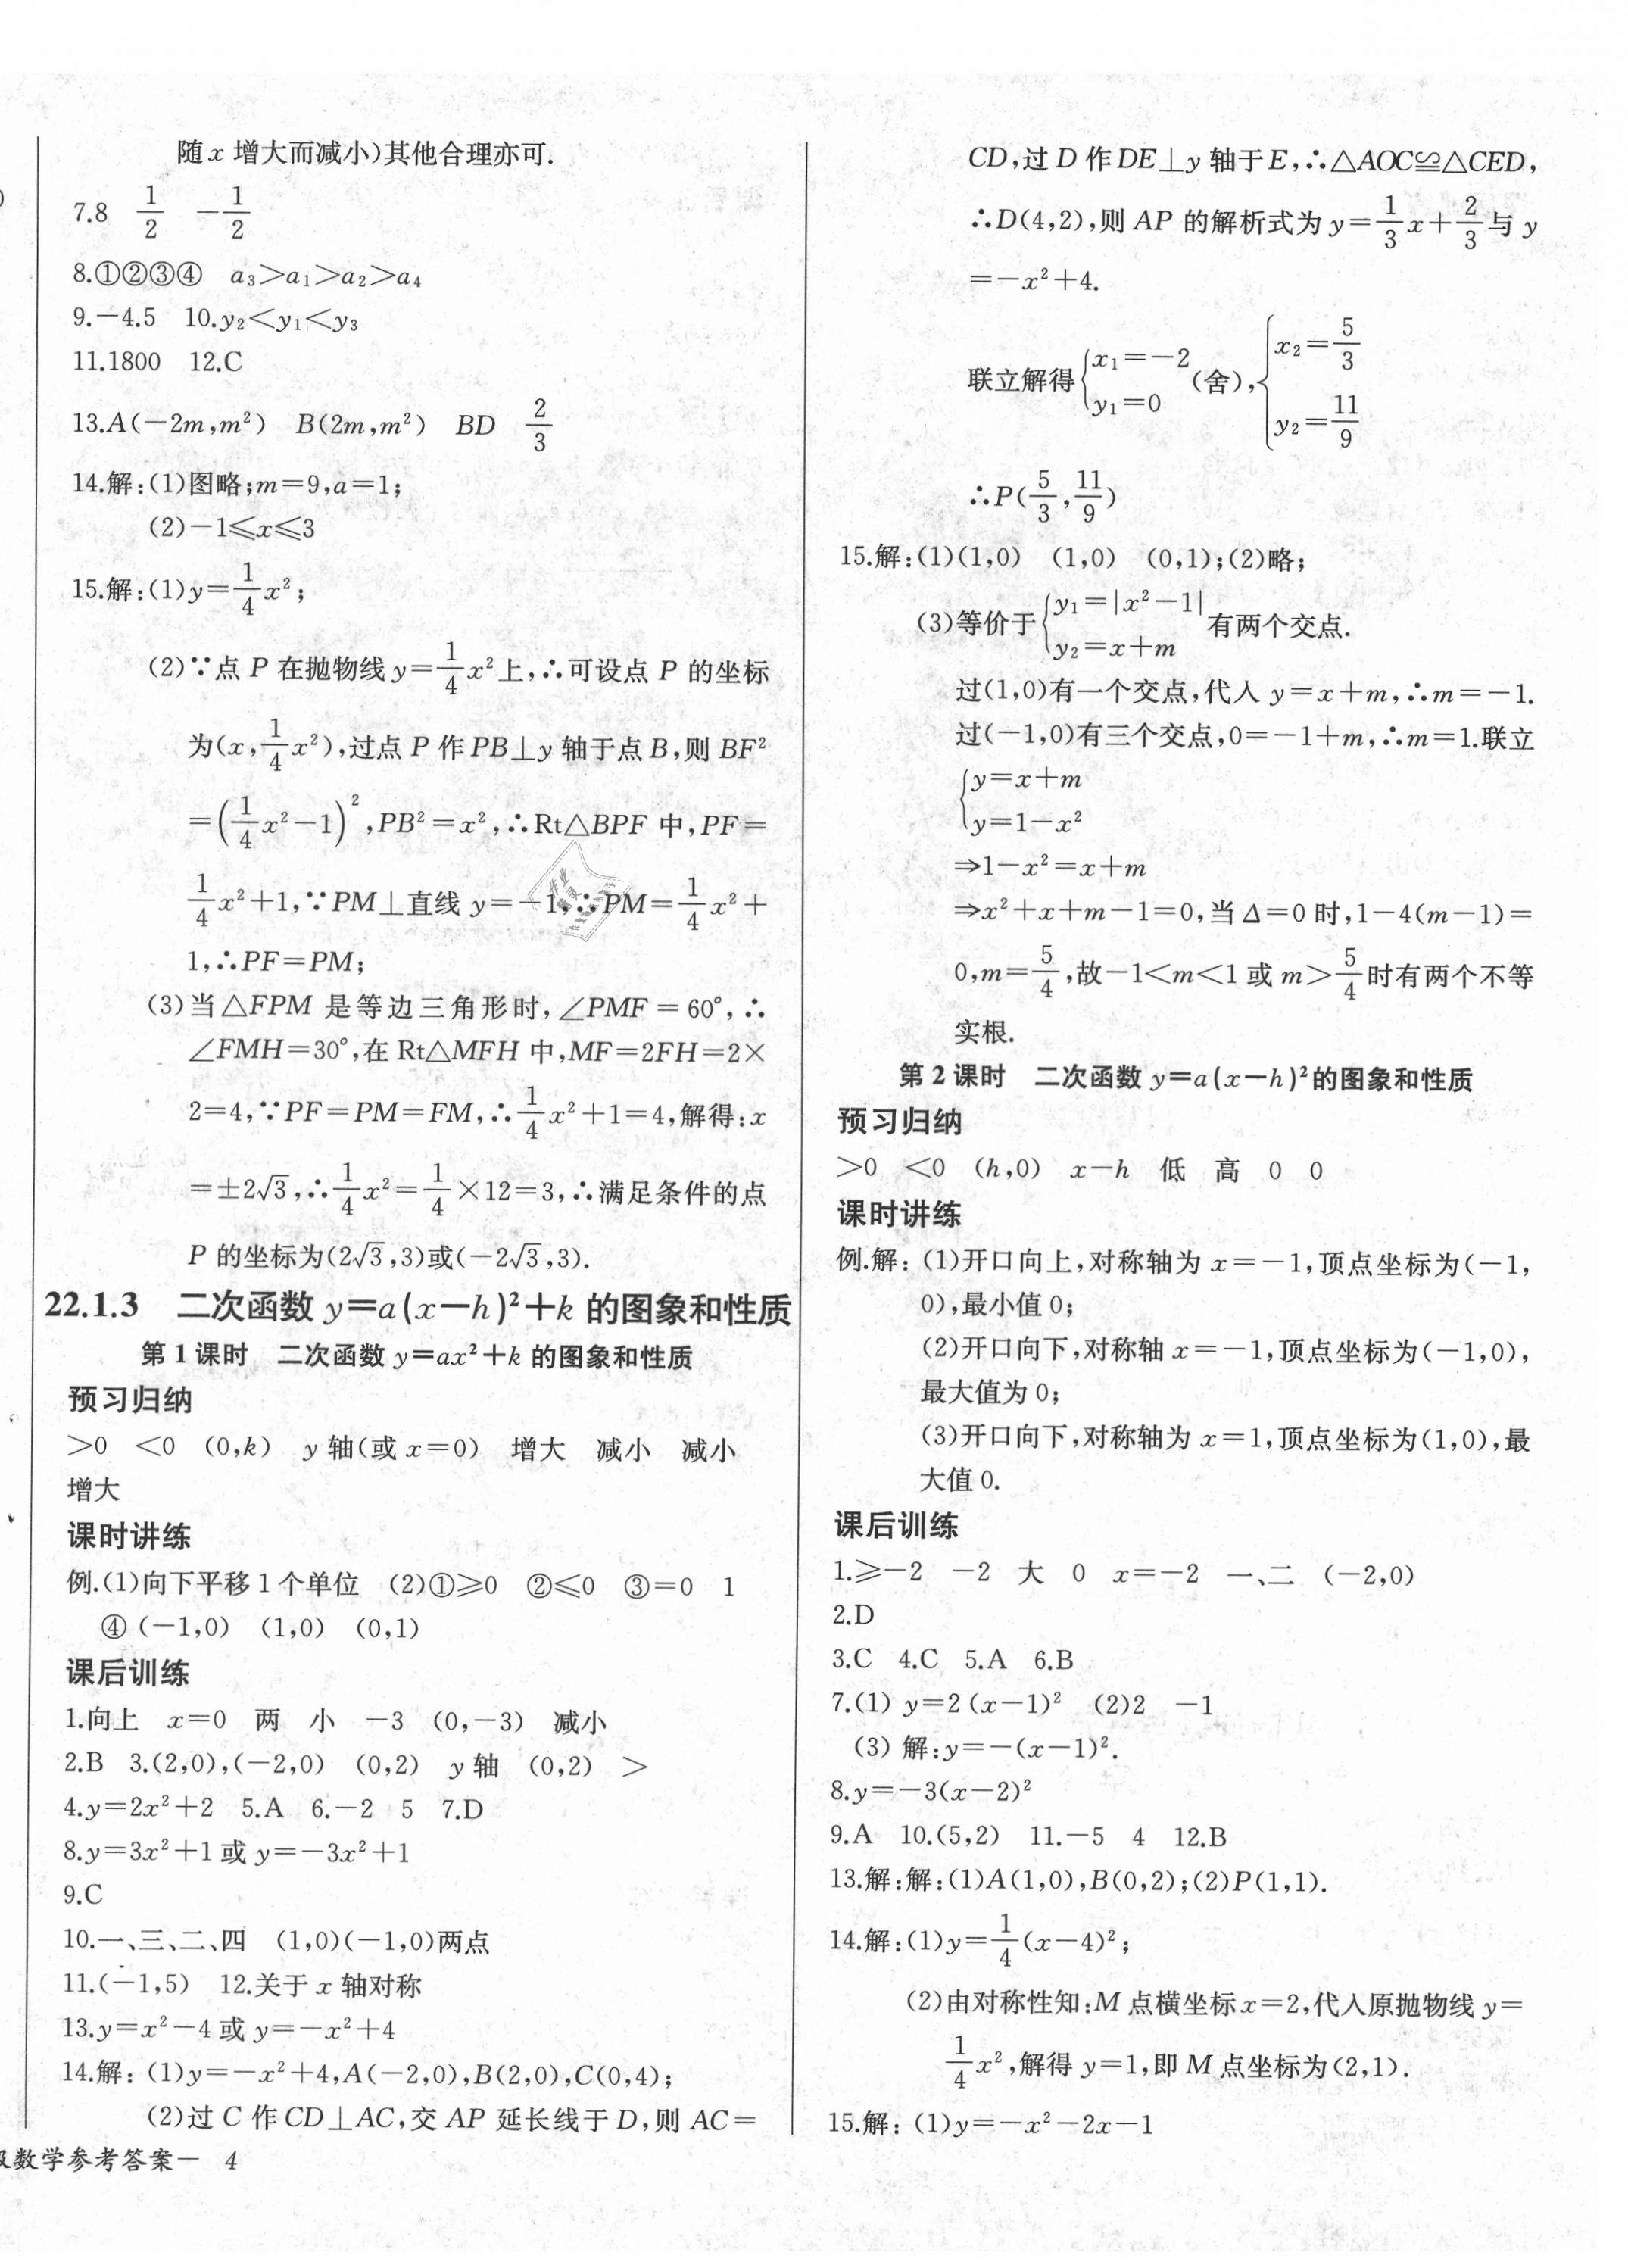 随x增大而减小)其他合理亦可.
7.8　1/2　-1/2
8.①②③④　a₃>a₁>a₂>a₄
9.-4.5　10.y₂<y₁<y₃
11.1800　12.C
13.A(-2m,m²)　B(2m,m²)　BD　2/3
14.解:(1)图略;m=9,a=1;
(2)-1≤x≤3
15.解:(1)y=1/4x²;
(2)∵点P在抛物线y=1/4x²上,∴可设点P的坐标
为(x,1/4x²),过点P作PB⊥y轴于点B,则BF²
=(1/4x²-1)²,PB²=x²,∴Rt△BPF中,PF=
1/4x²+1,∵PM⊥直线y=-1,∴PM=1/4x²+
1,∴PF=PM;
(3)当△FPM是等边三角形时,∠PMF=60°,∴
∠FMH=30°,在Rt△MFH中,MF=2FH=2×
2=4,∵PF=PM=FM,∴1/4x²+1=4,解得:x
=±2√3,∴1/4x²=1/4×12=3,∴满足条件的点
P的坐标为(2√3,3)或(-2√3,3).
22.1.3　二次函数y=a(x-h)²+k的图象和性质
第1课时　二次函数y=ax²+k的图象和性质
预习归纳
>0　<0　(0,k)　y轴(或x=0)　增大　减小　减小
增大
课时讲练
例.(1)向下平移1个单位　(2)①≥0　②≤0　③=0　1
④(-1,0)　(1,0)　(0,1)
课后训练
1.向上　x=0　两　小　-3　(0,-3)　减小
2.B　3.(2,0),(-2,0)　(0,2)　y轴　(0,2)　>
4.y=2x²+2　5.A　6.-2　5　7.D
8.y=3x²+1或y=-3x²+1
9.C
10.一、三、二、四　(1,0)(-1,0)两点
11.(-1,5)　12.关于x轴对称
13.y=x²-4或y=-x²+4
14.解:(1)y=-x²+4,A(-2,0),B(2,0),C(0,4);
(2)过C作CD⊥AC,交AP延长线于D,则AC=
级数学参考答案—　4
CD,过D作DE⊥y轴于E,∴△AOC≌△CED,
∴D(4,2),则AP的解析式为y=1/3x+2/3与y
=-x²+4.
联立解得{x₁=-2 y₁=0(舍),{x₂=5/3 y₂=11/9
∴P(5/3,11/9)
15.解:(1)(1,0)　(1,0)　(0,1);(2)略;
(3)等价于{y₁=|x²-1| y₂=x+m有两个交点.
过(1,0)有一个交点,代入y=x+m,∴m=-1.
过(-1,0)有三个交点,0=-1+m,∴m=1.联立
{y=x+m
y=1-x²
⇒1-x²=x+m
⇒x²+x+m-1=0,当Δ=0时,1-4(m-1)=
0,m=5/4,故-1<m<1或m>5/4时有两个不等
实根.
第2课时　二次函数y=a(x-h)²的图象和性质
预习归纳
>0　<0　(h,0)　x-h　低　高　0　0
课时讲练
例.解:(1)开口向上,对称轴为x=-1,顶点坐标为(-1,
0),最小值0;
(2)开口向下,对称轴x=-1,顶点坐标为(-1,0),
最大值为0;
(3)开口向下,对称轴为x=1,顶点坐标为(1,0),最
大值0.
课后训练
1.≥-2　-2　大　0　x=-2　一、二　(-2,0)
2.D
3.C　4.C　5.A　6.B
7.(1) y=2(x-1)²　(2)2　-1
(3) 解:y=-(x-1)².
8.y=-3(x-2)²
9.A　10.(5,2)　11.-5　4　12.B
13.解:解:(1)A(1,0),B(0,2);(2)P(1,1).
14.解:(1)y=1/4(x-4)²;
(2)由对称性知:M点横坐标x=2,代入原抛物线y=
1/4x²,解得y=1,即M点坐标为(2,1).
15.解:(1)y=-x²-2x-1